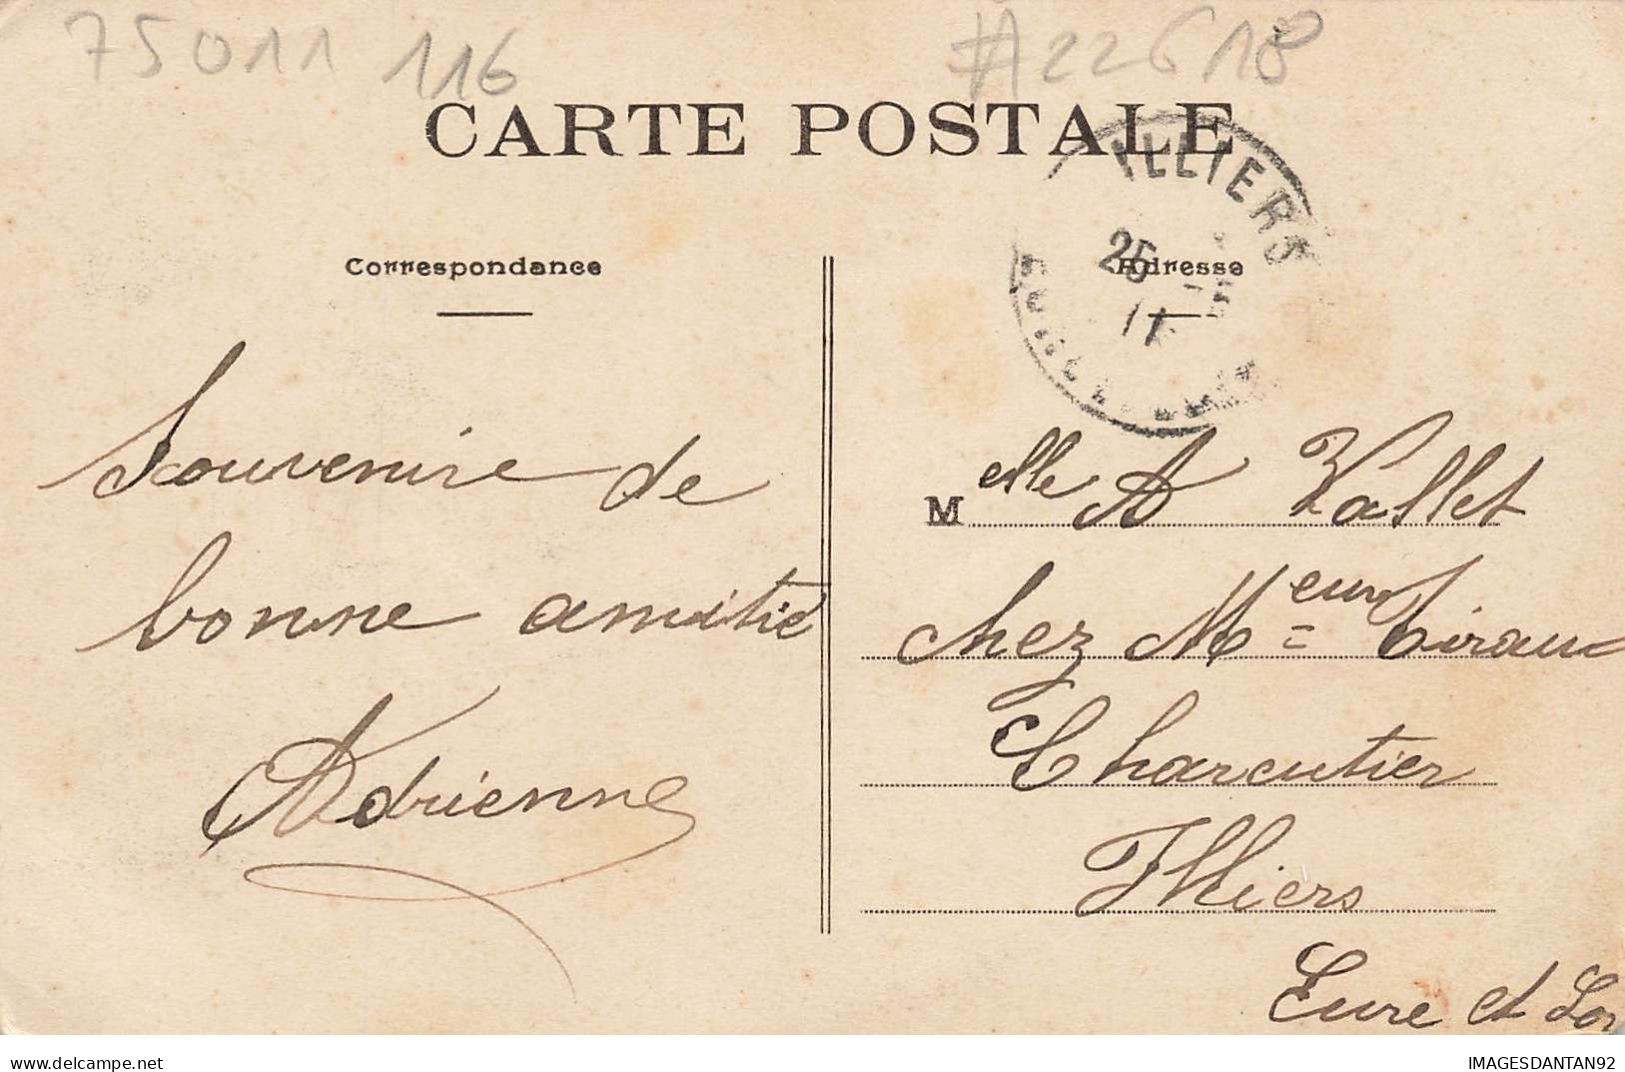 75011 116
#22618
CARTE POSTALE
ILLIERS
25
Correspondance
Adresse
Souvenire de
bonne amitié
Adrienne
Melle A Vallet
chez Meur=
Charcutier
Illiers
Eure et Loi
delcampe.net
IMAGESDANTAN92